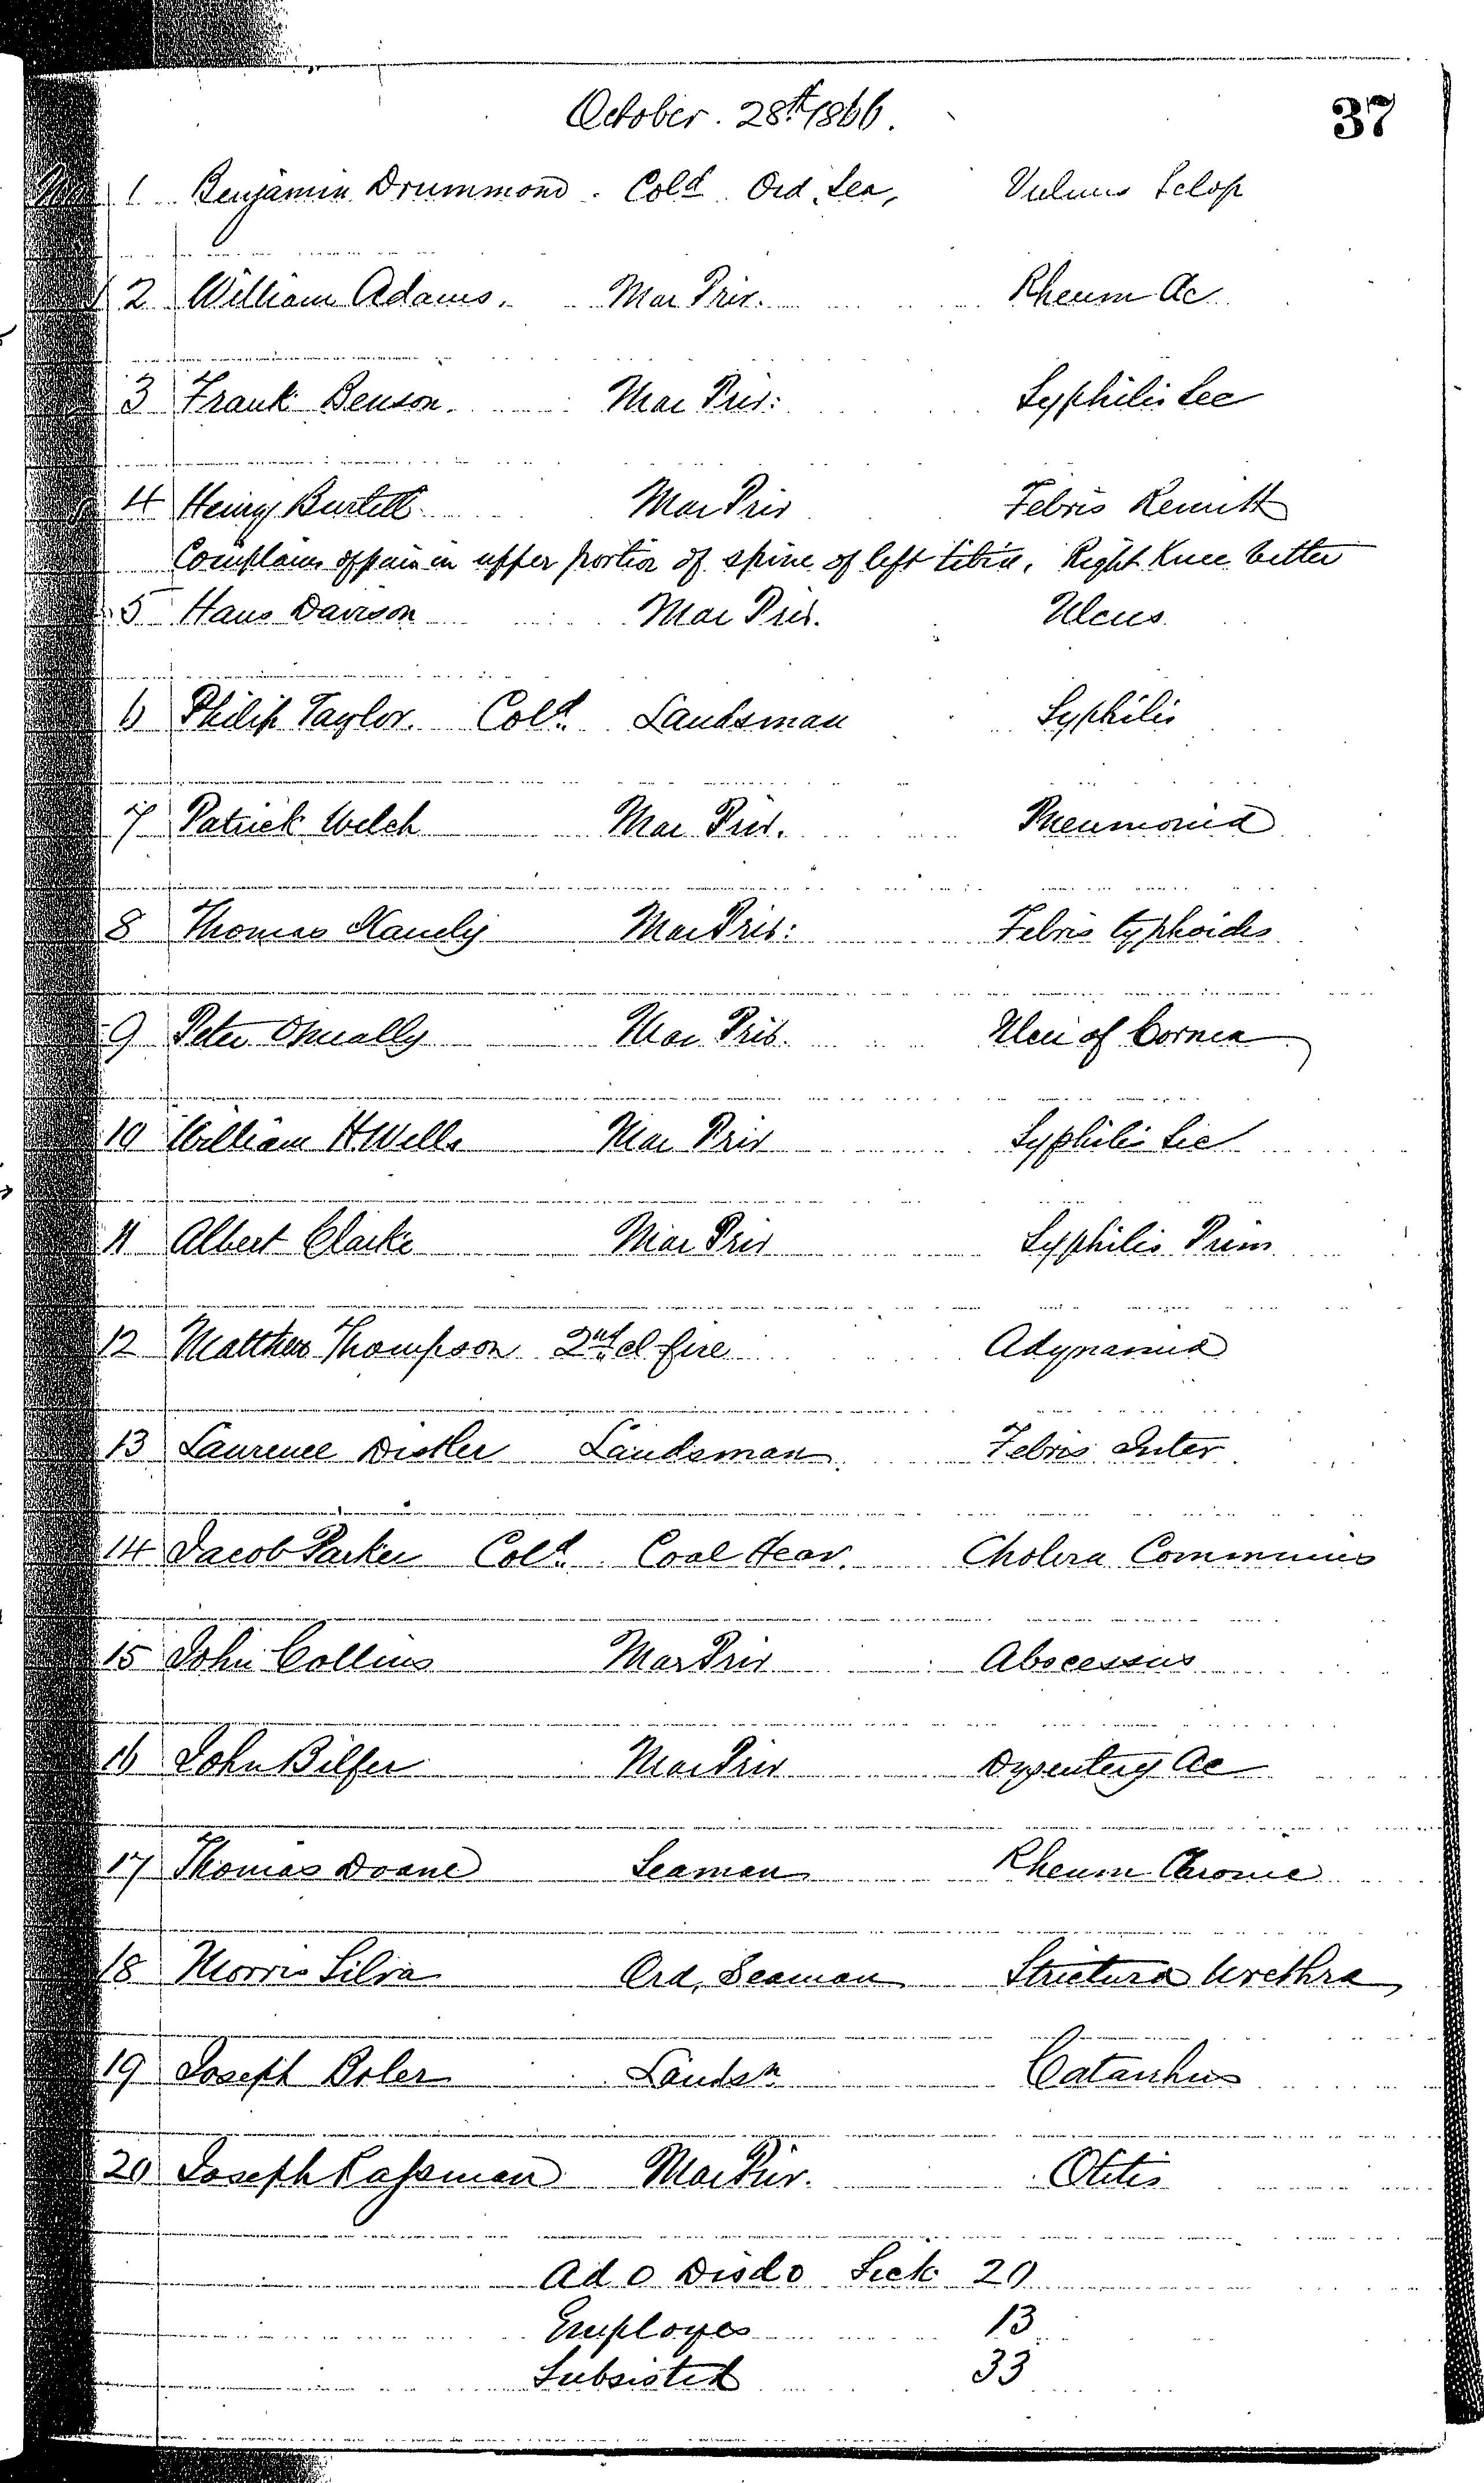 October. 28th 1866.
37
1 Benjamin Drummond. Cold Ord. Sea, Vulnus Sclop
2 William Adams. Mar Priv. Rheum Ac
3 Frank Benson. Mar Priv: Syphilis Sec
4 Henry Burtell Mar Priv Febris Remitt
Complains of pain in upper portion of spine of left tibia. Right Knee better
5 Hans Davison Mar Priv. Ulcus
6 Philip Taylor. Cold. Landsman Syphilis
7 Patrick Welch Mar Priv. Pneumonia
8 Thomas Mar Priv: Febris typhoides
9 Peter Mar Priv. Ulcer of Cornea
10 William H. Wells Mar Priv Syphilis Sec
11 Albert Clarke Mar Priv Syphilis Prim
12 Matthew Thompson 2nd cl fire Adynamia
13 Laurence Distler Landsman Febris Inter
14 Jacob Parker Cold. Coal Heav. Cholera Communis
15 John Collins Mar Priv Abscessus
16 John Bilfer Mar Priv Dysentery Ac
17 Thomas Doane Seaman Rheum Chronic
18 Morris Silva Ord. Seaman Strictura Urethra
19 Joseph Boler Landsn Catarrhus
20 Joseph Passman Mar Priv. Otitis
Ad 0 Disd 0 Sick 20
Employes 13
Subsisted 33